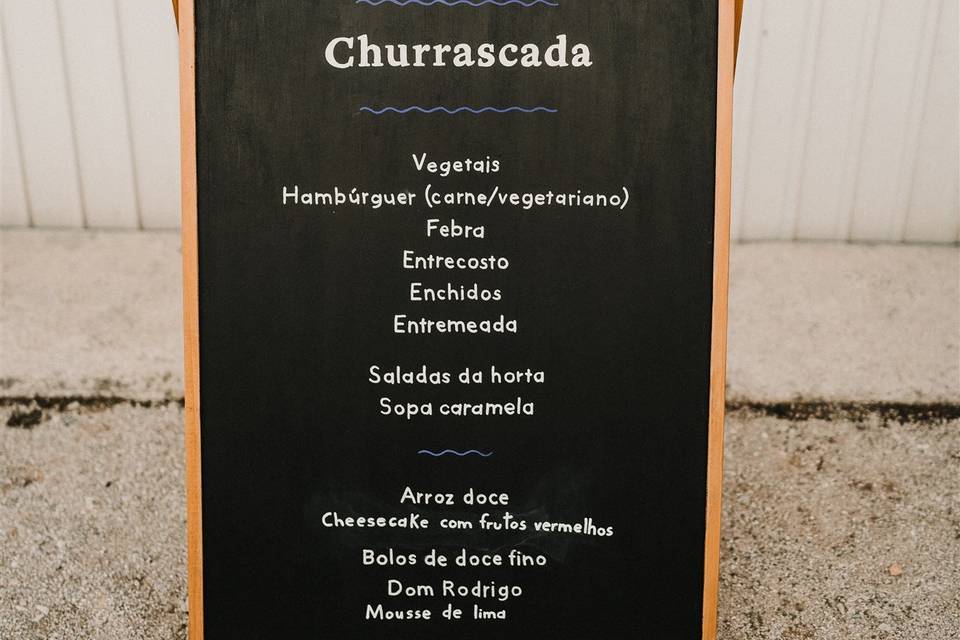 Churrascada
Vegetais
Hambúrguer (carne/vegetariano)
Febra
Entrecosto
Enchidos
Entremeada
Saladas da horta
Sopa caramela
Arroz doce
Cheesecake com frutos vermelhos
Bolos de doce fino
Dom Rodrigo
Mousse de lima